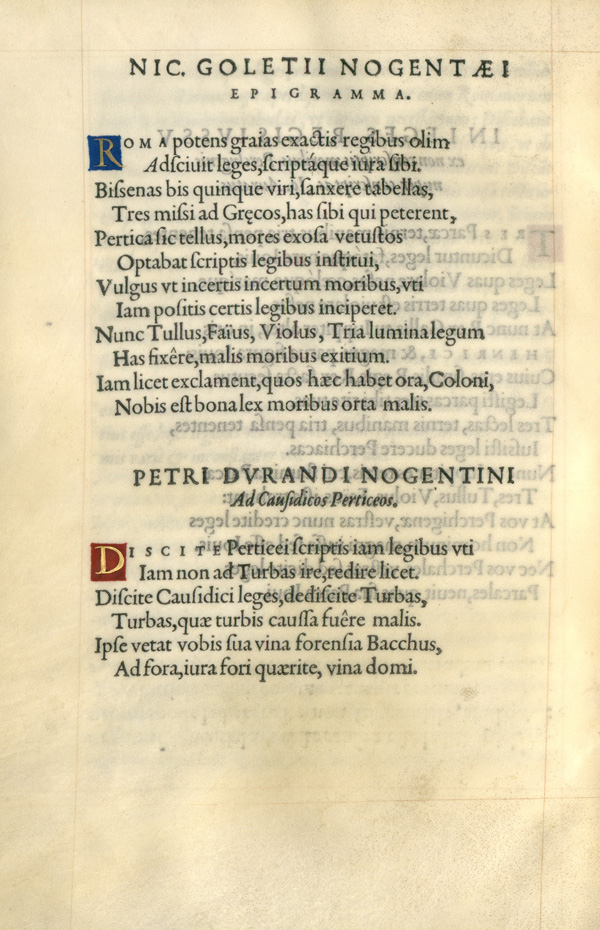 NIC. GOLETII NOGENTÆI
EPIGRAMMA.
ROMA potens graias exactis regibus olim
Adsciuit leges, scriptáque iura sibi.
Bissenas bis quinque viri, sanxere tabellas,
Tres missi ad Gręcos, has sibi qui peterent,
Pertica sic tellus, mores exosa vetustos
Optabat scriptis legibus institui,
Vulgus vt incertis incertum moribus, vti
Iam positis certis legibus inciperet.
Nunc Tullus, Faïus, Violus, Tria lumina legum
Has fixêre, malis moribus exitium.
Iam licet exclament, quos hæc habet ora, Coloni,
Nobis est bona lex moribus orta malis.
PETRI DVRANDI NOGENTINI
Ad Causidicos Perticeos.
DISCITE Perticei scriptis iam legibus vti
Iam non ad Turbas ire, redire licet.
Discite Causidici leges, dediscite Turbas,
Turbas, quæ turbis caussa fuêre malis.
Ipse vetat vobis sua vina forensia Bacchus,
Ad fora, iura fori quærite, vina domi.